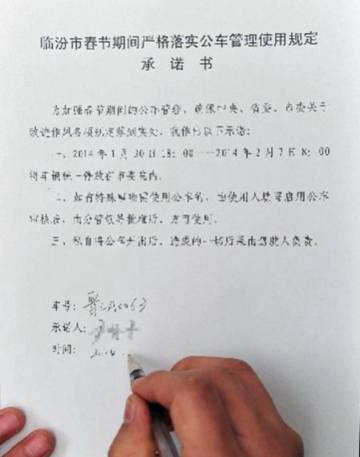 临汾市春节期间严格落实公车管理使用规定
承诺书
为加强春节期间的公车管理，确保中央、省委、市委关于
改进作风各项规定落到实处，我作如下承诺：
一、2014年1月30日18：00——2014年2月7日8：00
将车辆统一停放在市委院内。
二、如有特殊
使用公车的，由使用人
启用公车
，由分管领导批准后，方可使用。
三、私自将公车开出后，造成的一切后果由驾驶人负责。
车号：晋
承诺人：
时间：2014